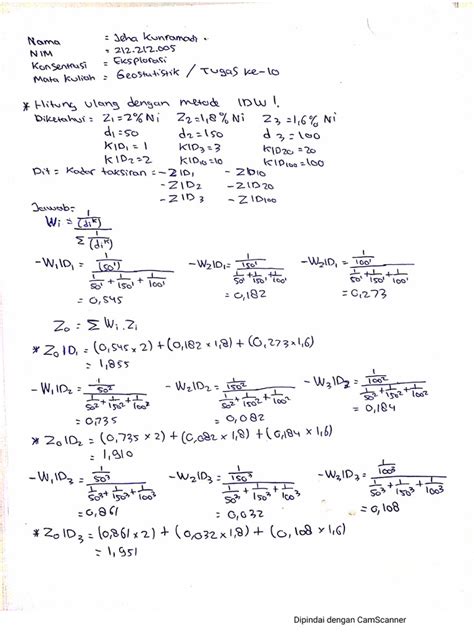 Nama = Jeha Kunramadi.
NIM = 212.212.005
Konsentrusi = Eksplorasi
Mata Kuliah = Geostatistik / Tugas ke-10
* Hitung ulang dengan metode IDW!
Diketahui: Z₁=2% Ni Z₂=1,8% Ni Z₃=1,6% Ni
d₁=50 d₂=150 d₃=100
KID₁=1 KID₃=3 KID₂₀=20
KID₂=2 KID₁₀=10 KID₁₀₀=100
Dit = Kadar taksiran = -ZID₁ -ZID₁₀
-ZID₂ -ZID₂₀
-ZID₃ -ZID₁₀₀
Jawab:
Wi = (1/(di^k)) / (Σ 1/(di^k))
-W₁ID₁ = (1/(50¹)) / (1/50¹ + 1/150¹ + 1/100¹) -W₂ID₁ = (1/150¹) / (1/50¹ + 1/150¹ + 1/100¹) -W₃ID₁ = (1/100¹) / (1/50¹ + 1/150¹ + 1/100¹)
= 0,545 = 0,182 = 0,273
Z₀ = Σ Wi.Zi
* Z₀ID₁ = (0,545 x 2) + (0,182 x 1,8) + (0,273 x 1,6)
= 1,855
-W₁ID₂ = (1/50²) / (1/50² + 1/150² + 1/100²) -W₂ID₂ = (1/150²) / (1/50² + 1/150² + 1/100²) -W₃ID₂ = (1/100²) / (1/50² + 1/150² + 1/100²)
= 0,735 = 0,082 = 0,184
* Z₀ID₂ = (0,735 x 2) + (0,082 x 1,8) + (0,184 x 1,6)
= 1,910
-W₁ID₃ = (1/50³) / (1/50³ + 1/150³ + 1/100³) -W₂ID₃ = (1/150³) / (1/50³ + 1/150³ + 1/100³) -W₃ID₃ = (1/100³) / (1/50³ + 1/150³ + 1/100³)
= 0,861 = 0,032 = 0,108
* Z₀ID₃ = (0,861 x 2) + (0,032 x 1,8) + (0,108 x 1,6)
= 1,951
Dipindai dengan CamScanner